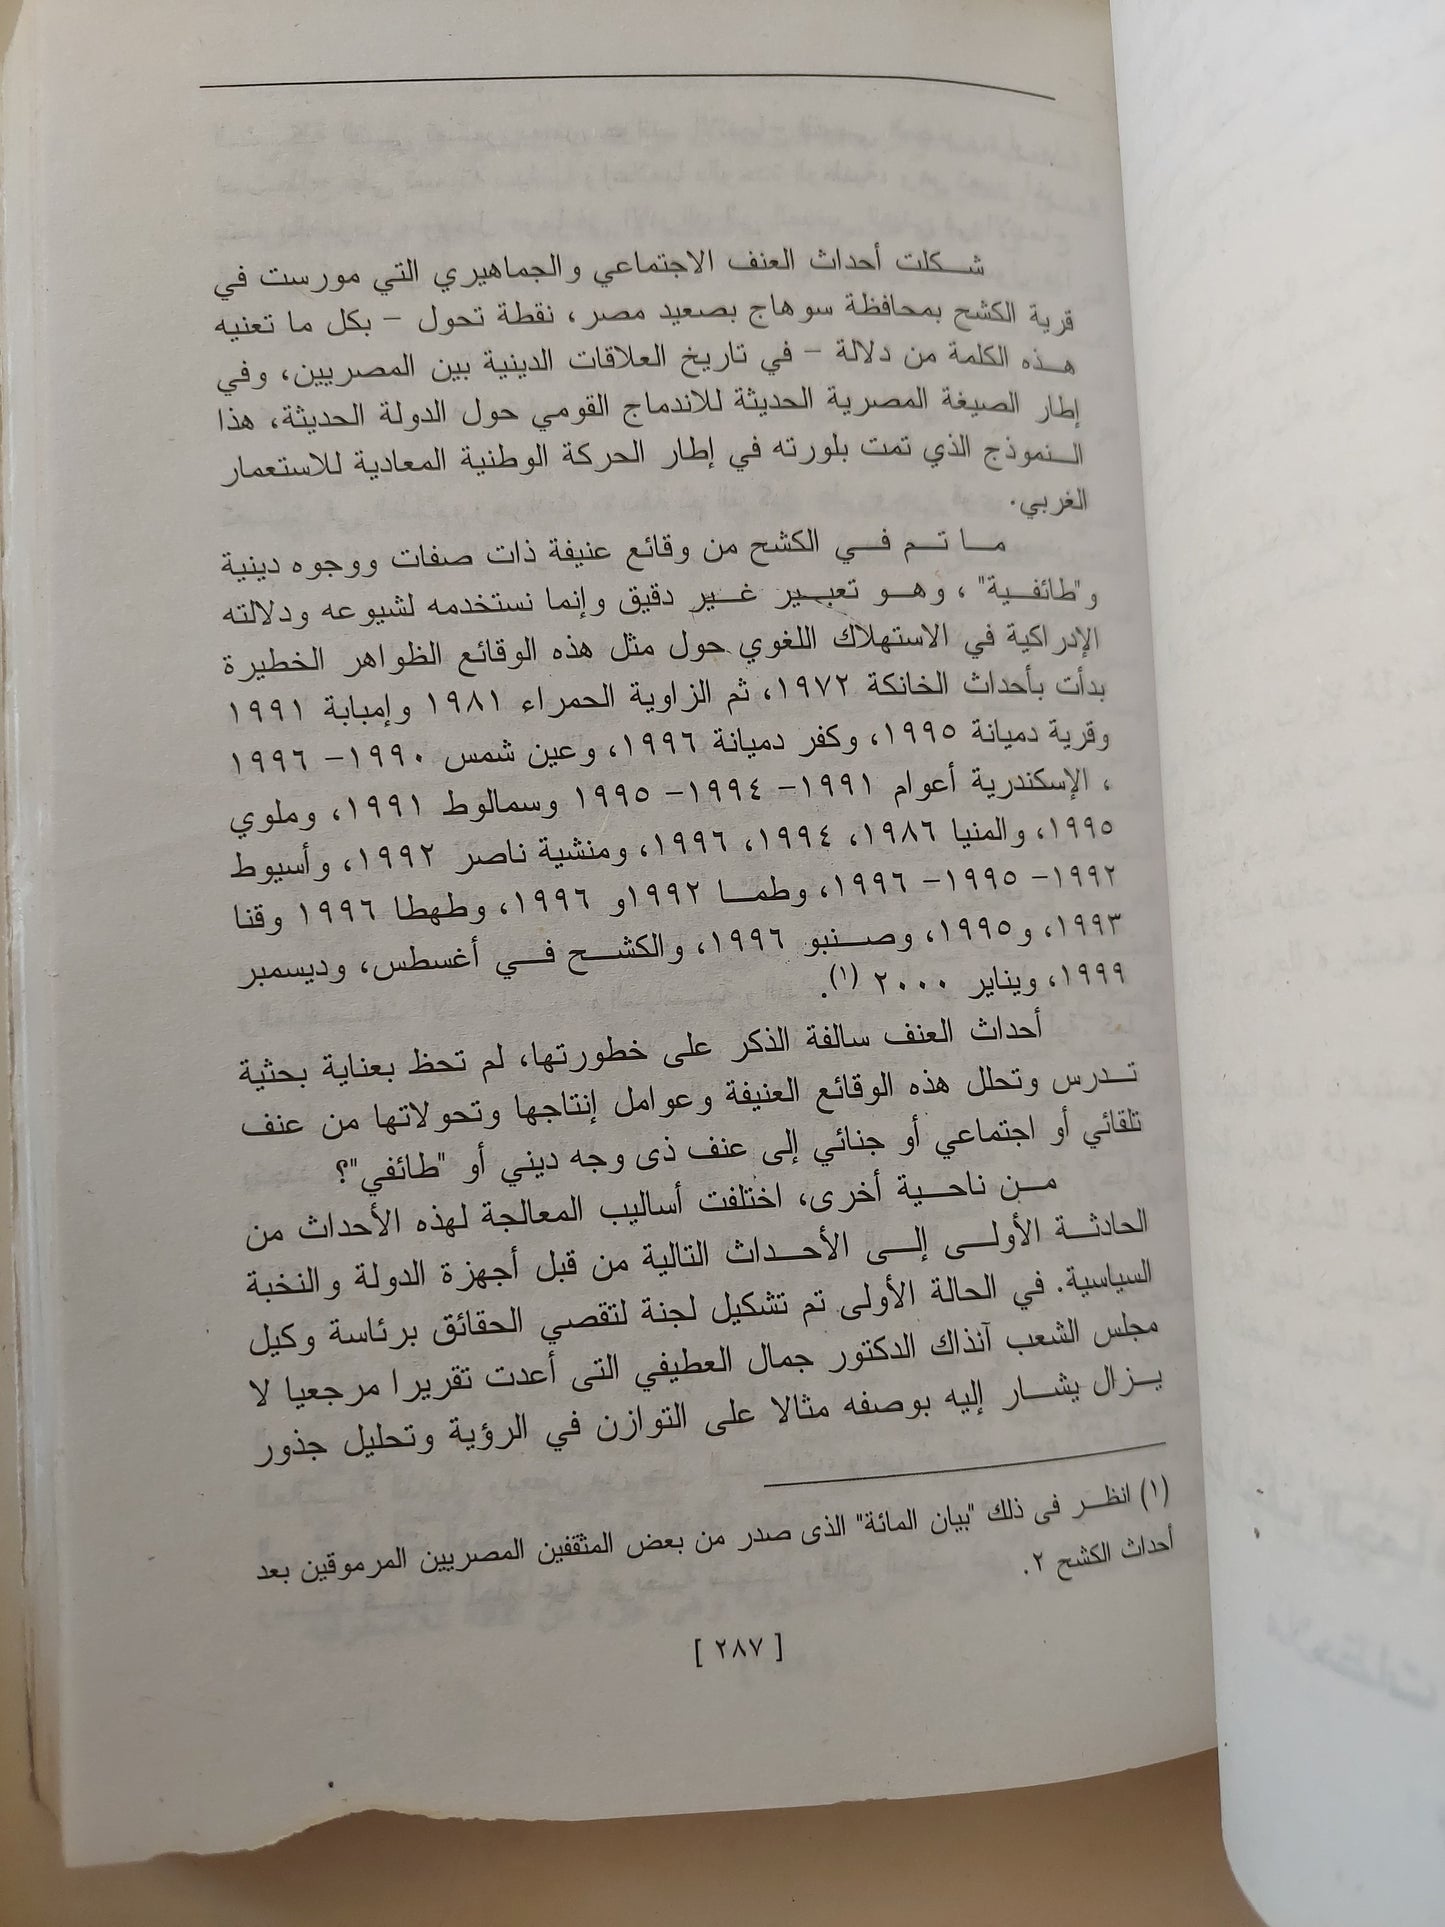 شكلت أحداث العنف الاجتماعي والجماهيري التي مورست في
قرية الكشح بمحافظة سوهاج بصعيد مصر، نقطة تحول – بكل ما تعنيه
هذه الكلمة من دلالة – في تاريخ العلاقات الدينية بين المصريين، وفي
إطار الصيغة المصرية الحديثة للاندماج القومي حول الدولة الحديثة، هذا
النموذج الذي تمت بلورته في إطار الحركة الوطنية المعادية للاستعمار
الغربي.
ما تم في الكشح من وقائع عنيفة ذات صفات ووجوه دينية
و"طائفية" ، وهو تعبير غير دقيق وإنما نستخدمه لشيوعه ودلالته
الإدراكية في الاستهلاك اللغوي حول مثل هذه الوقائع الظواهر الخطيرة
بدأت بأحداث الخانكة ١٩٧٢، ثم الزاوية الحمراء ١٩٨١ وإمبابة ١٩٩١
وقرية دميانة ١٩٩٥، وكفر دميانة ١٩٩٦، وعين شمس ١٩٩٠- ١٩٩٦
، الإسكندرية أعوام ١٩٩١- ١٩٩٤- ١٩٩٥ وسمالوط ١٩٩١، وملوي
١٩٩٥، والمنيا ١٩٨٦، ١٩٩٤، ١٩٩٦، ومنشية ناصر ١٩٩٢، وأسيوط
١٩٩٢- ١٩٩٥- ١٩٩٦، وطما ١٩٩٢و ١٩٩٦، وطهطا ١٩٩٦ وقنا
١٩٩٣، و١٩٩٥، وصنبو ١٩٩٦، والكشح في أغسطس، وديسمبر
١٩٩٩، ويناير ٢٠٠٠ (١).
أحداث العنف سالفة الذكر على خطورتها، لم تحظ بعناية بحثية
تدرس وتحلل هذه الوقائع العنيفة وعوامل إنتاجها وتحولاتها من عنف
تلقائي أو اجتماعي أو جنائي إلى عنف ذى وجه ديني أو "طائفي"؟
من ناحية أخرى، اختلفت أساليب المعالجة لهذه الأحداث من
الحادثة الأولى إلى الأحداث التالية من قبل أجهزة الدولة والنخبة
السياسية. في الحالة الأولى تم تشكيل لجنة لتقصي الحقائق برئاسة وكيل
مجلس الشعب آنذاك الدكتور جمال العطيفي التى أعدت تقريرا مرجعيا لا
يزال يشار إليه بوصفه مثالا على التوازن في الرؤية وتحليل جذور
(١) انظر فى ذلك "بيان المائة" الذى صدر من بعض المثقفين المصريين المرموقين بعد
أحداث الكشح ٢.
[ ٢٨٧ ]